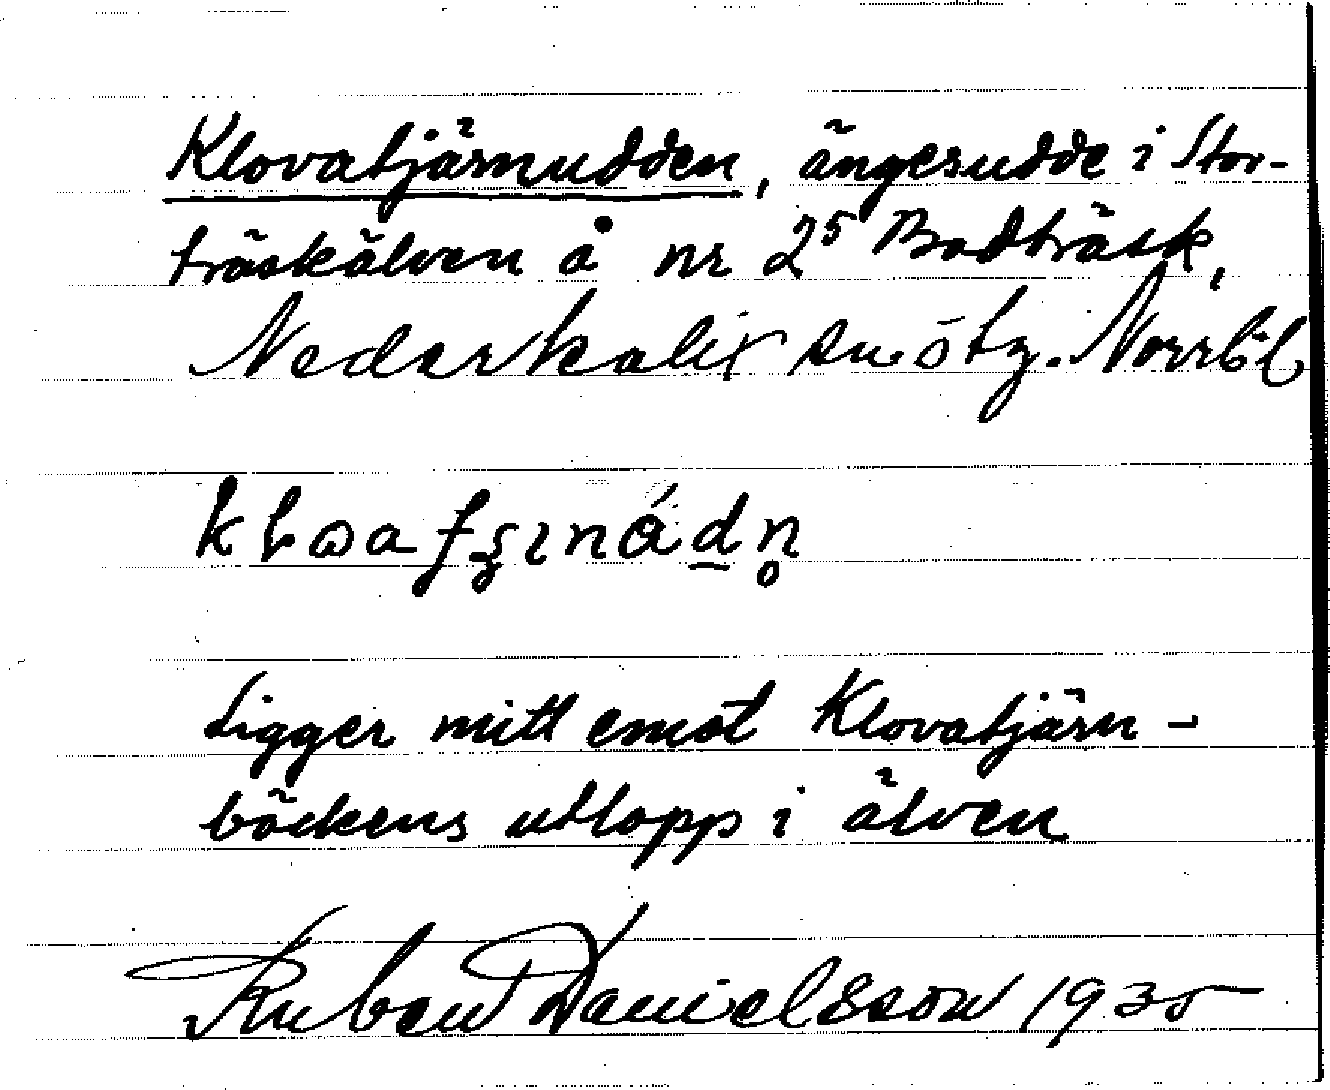 Klovatjärnudden, ängesudde i Stor-
träskälven å nr 25 Bodträsk,
Nederkalix sn ö tg. Norrb l
Ligger mitt emot Klovatjärn-
bäckens utlopp i älven
Ruben Danielsson 1935